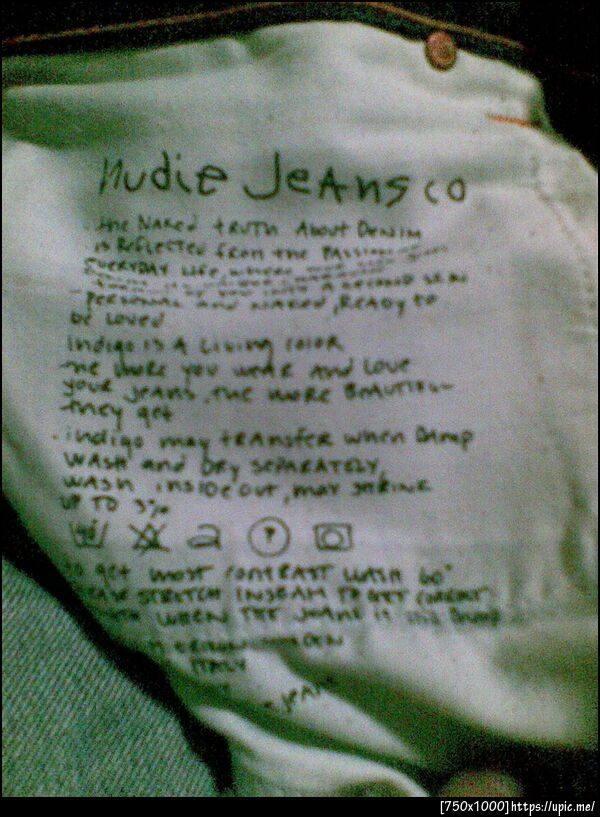 nudie Jeans co
the NAked tRUTH About DeNiM
is ReFlected from the PASSION
EVERYDAY LIFE, where
A SECOND SKIN
PERSONAL AND NAKED, READY to
be LOVED
Indigo is A Living COLOR
the more you weAR AND LOVE
YOUR JEANS, THE MORE BEAUTIFUL
they get
indigo may tRANSFER when DAmp
WASH and DRY SEPARATELY,
WASH INSIDEOUT, MAY SHRINK
UP TO 3%
?
get most CONTRAST WASH 60°
STRETCH INSEAM TO GET CORRECT
WHEN THE JEANS IS
ITALY
[750x1000]https://upic.me/